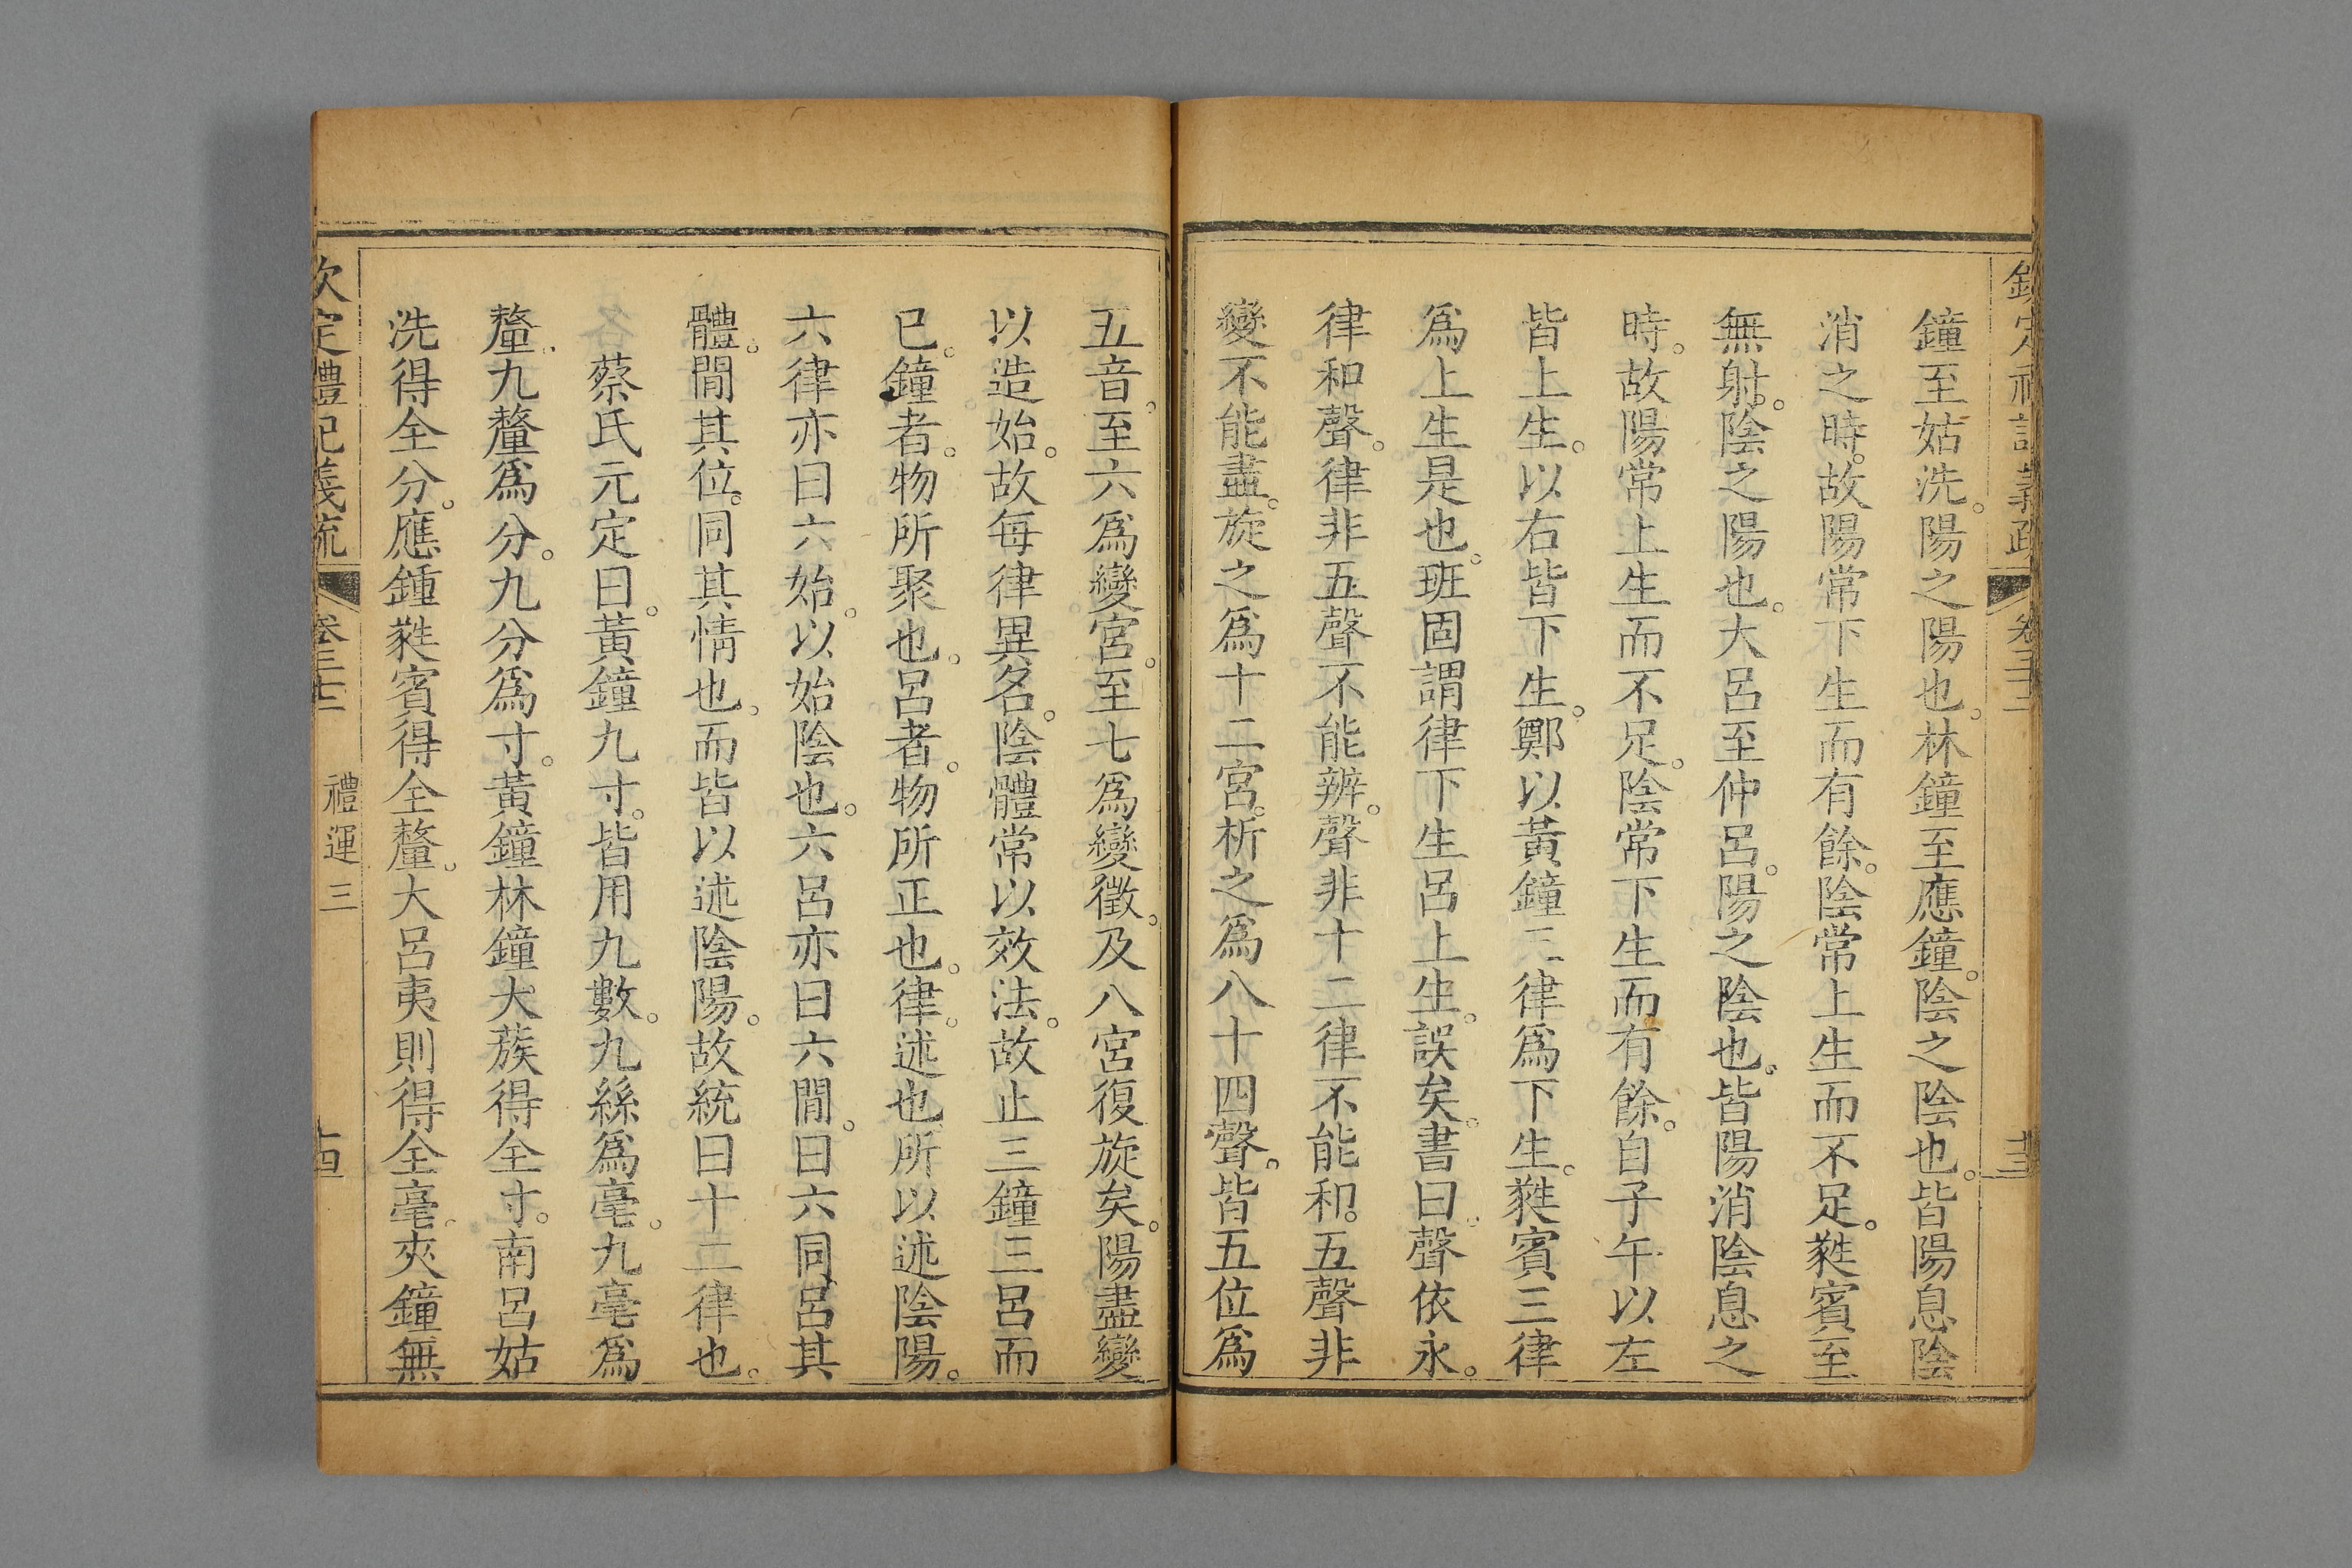 鐘至姑洗。陽之陽也。林鐘至應鐘。陰之陰也。皆陽息陰
消之時。故陽常下生而有餘。陰常上生而不足。蕤賓至
無射。陰之陽也。大呂至仲呂。陽之陰也。皆陽消陰息之
時。故陽常上生而不足。陰常下生而有餘。自子午以左
皆上生。以右皆下生。鄭以黃鐘三律爲下生。蕤賓三律
爲上生是也。班固謂律下生呂上生。誤矣。書曰。聲依永。
律和聲。律非五聲不能辨。聲非十二律不能和。五聲非
變不能盡。旋之爲十二宮。析之爲八十四聲。皆五位爲
五音。至六爲變宮。至七爲變徵。及八宮復旋矣。陽盡變
以造始。故每律異名。陰體常以效法。故止三鐘三呂而
已。鐘者。物所聚也。呂者。物所正也。律。述也。所以述陰陽。
六律亦曰六始。以始陰也。六呂亦曰六閒。曰六同。呂其
體。閒其位。同其情也。而皆以述陰陽。故統曰十二律也。
蔡氏元定曰。黃鐘九寸。皆用九數。九絲爲毫。九毫爲
釐。九釐爲分。九分爲寸。黃鐘林鐘大蔟得全寸。南呂姑
洗得全分。應鍾蕤賓得全釐。大呂夷則得全毫。夾鐘無
欽定禮記義疏 卷三十二 禮運三